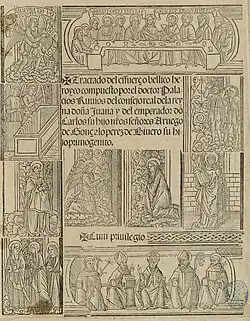 ✠Tractado del esfuerço bellico he
royco compuesto por el doctor Pala
cios Ruuios del consejo real de la rey
na doña Juana y del emperador dō
Carlos su hijo nr̄os señores A ruego
de Gonçalo perez de Biuero su hi
jo primogenito.
✠Cum priuilegio